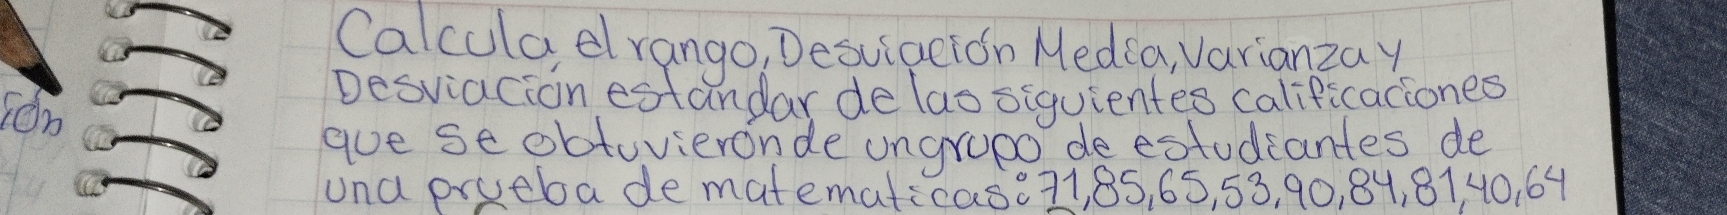 Calcula, el rango, Desviación Media, Varianza y
Desviación estándar de las siguientes calificaciones
ión
que se obtuvierón de un grupo de estudiantes de
una prueba de matematicas: 71,85,65,53,90,84,81,40,64